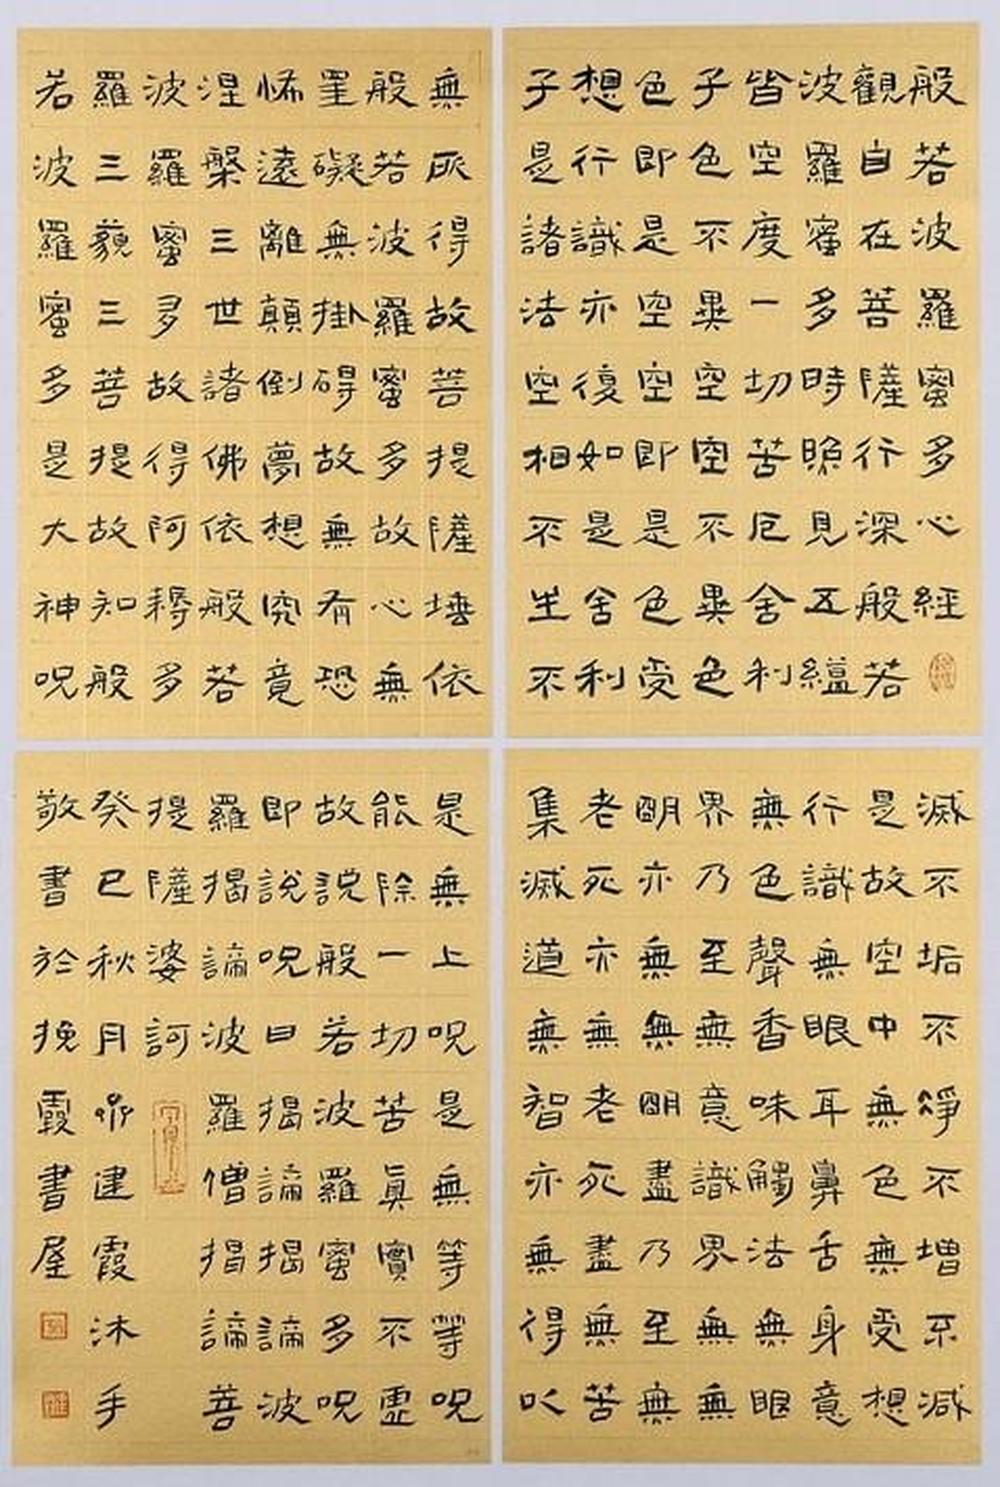 般若波羅蜜多心經
觀自在菩薩行深般若
波羅蜜多時照見五蘊
皆空度一切苦厄舍利
子色不異空空不異色
色即是空空即是色受
想行識亦復如是舍利
子是諸法空相不生不
滅不垢不淨不增不減
是故空中無色無受想
行識無眼耳鼻舌身意
無色聲香味觸法無眼
界乃至無意識界無無
明亦無無明盡乃至無
老死亦無老死盡無苦
集滅道無智亦無得以
無所得故菩提薩埵依
般若波羅蜜多故心無
罣礙無掛碍故無有恐
怖遠離顛倒夢想究竟
涅槃三世諸佛依般若
波羅蜜多故得阿耨多
羅三藐三菩提故知般
若波羅蜜多是大神呪
是無上呪是無等等呪
能除一切苦眞實不虛
故說般若波羅蜜多呪
即說呪曰揭諦揭諦波
羅揭諦波羅僧揭諦菩
提薩婆訶
癸巳秋月建霞沐手
敬書於挽霞書屋